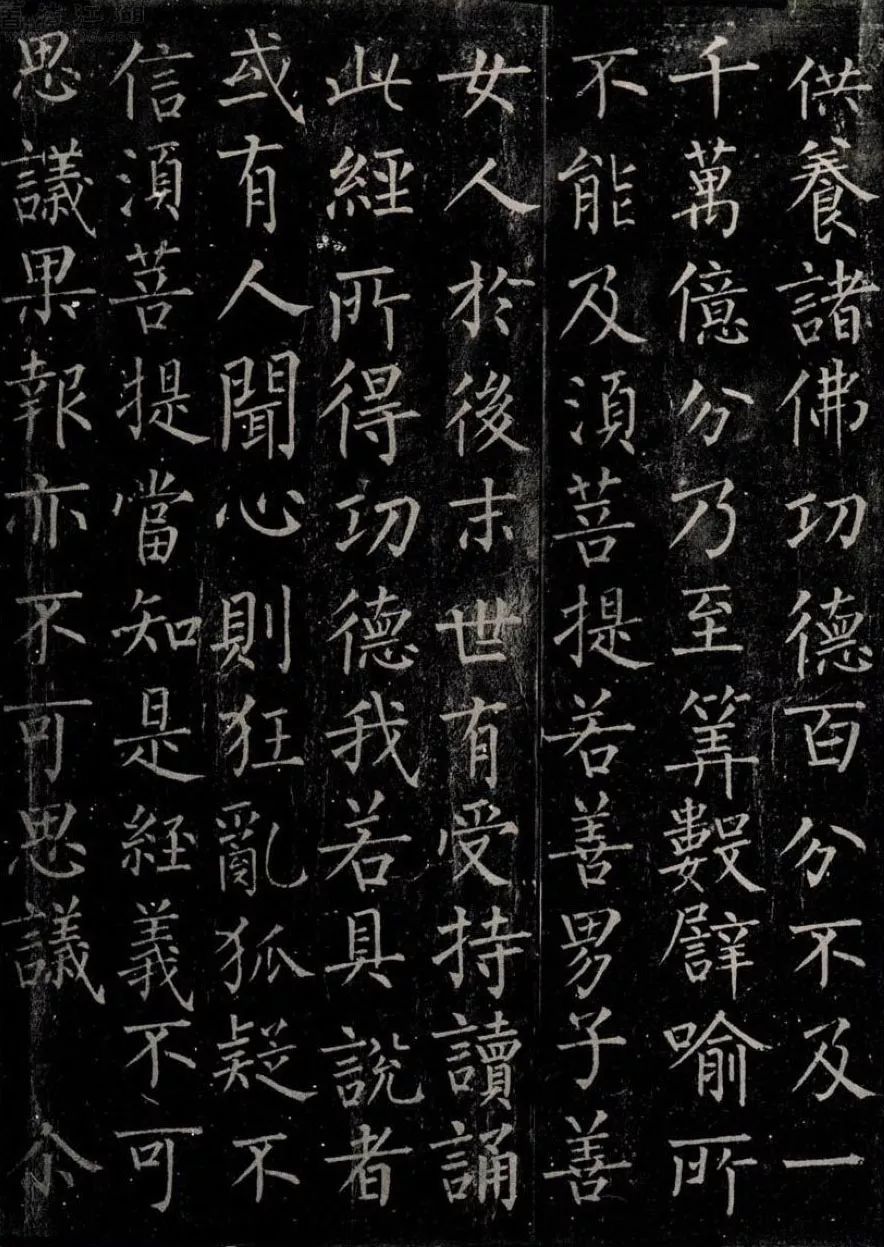 供養諸佛功德百分不及一
千萬億分乃至筭數譬喻所
不能及須菩提若善男子善
女人於後末世有受持讀誦
此經所得功德我若具說者
或有人聞心則狂亂狐疑不
信須菩提當知是経義不可
思議果報亦不可思議　尒